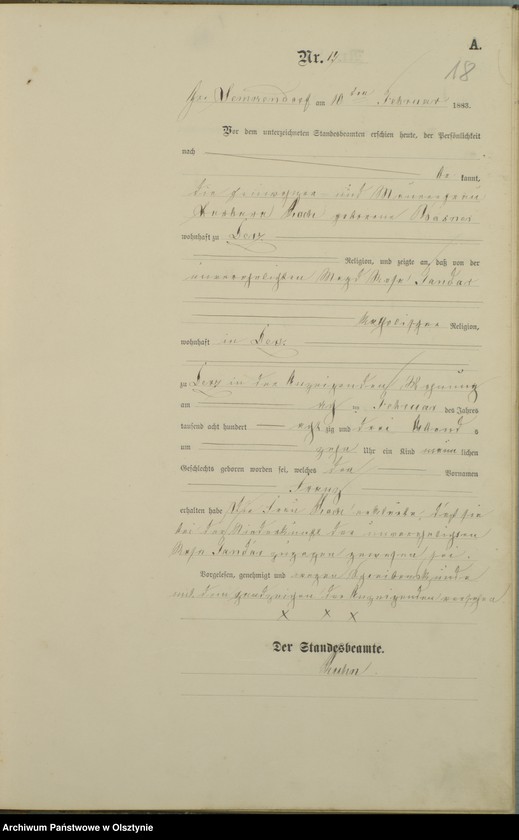 A.
Nr. 13.
18
am 10 ten Februar 1883.
Vor dem unterzeichneten Standesbeamten erschien heute, der Persönlichkeit
nach
be kannt,
die und
geborene
wohnhaft zu
Religion, und zeigte an, daß von der
unverehelichten Magd Rosa Jandas
katholischer Religion,
wohnhaft in
zu in der Anzeigenden Wohnung
am Februar des Jahres
tausend acht hundert acht zig und drei Abend s
um zehn Uhr ein Kind männ lichen
Geschlechts geboren worden sei, welches den Vornamen
Franz
erhalten habe Die Frau erklärte, daß sie
bei der Niederkunft der unverehelichten
Rosa Jandas zugegen gewesen sei.
Vorgelesen, genehmigt und wegen Schreibensunkunde
mit dem Handzeichen der Anzeigenden versehen
x x x
Der Standesbeamte.
Archiwum Państwowe w Olsztynie